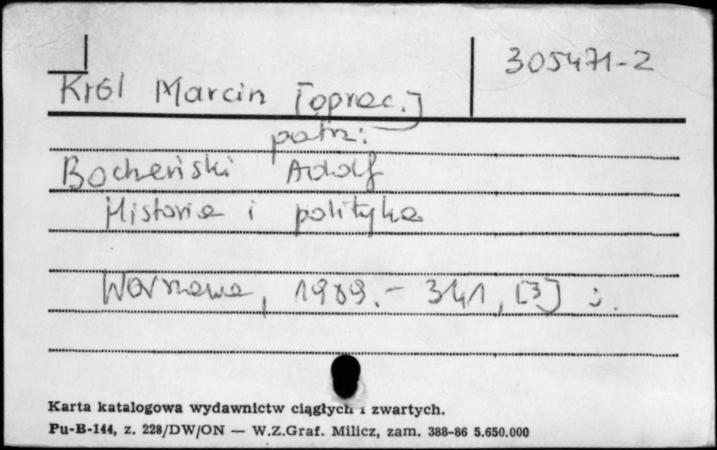 305471-2
Król Marcin [oprac.]
patrz:
Bocheński Adolf
Historia i polityka
Warszawa, 1989. - 341, [3] s.
Karta katalogowa wydawnictw ciągłych i zwartych.
Pu-B-144, z. 228/DW/ON — W.Z.Graf. Milicz, zam. 388-86 5.650.000